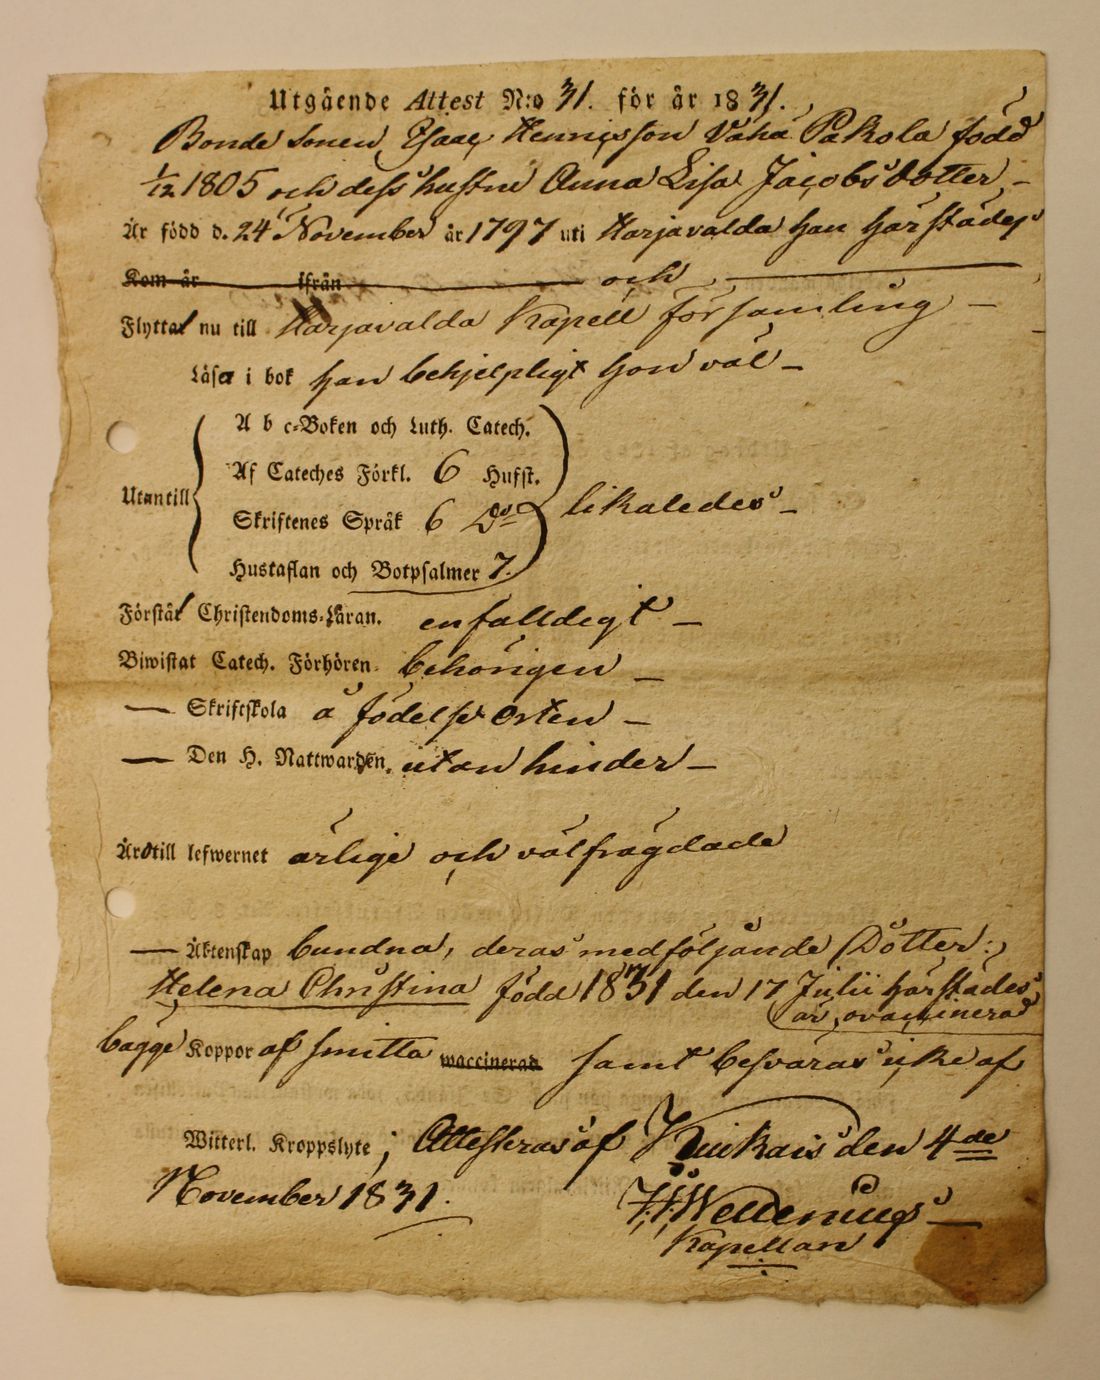 Utgående Attest N:o 31. för år 1831.
Bonde sonen Isaac Henricsson Vähä Pakola född
1/12 1805 och dess hustru Anna Lisa Jacobsdotter –
Är född d. 24 November år 1797 uti Harjavalda han härstädes
Kom år ifrån och
Flytta nu till Harjavalda Kapell församling –
Läsa i bok han behjelpligt hon väl –
A b c-Boken och Luth. Catech.
Af Cateches Förkl. 6 Hufst.
Utantill likaledes –
Skriftenes Språk 6 Do
Hustaflan och Botpsalmer 7.
Förstå Christendoms-Läran. enfalldigt –
Biwistat Catech. Förhören behörigen –
— Skriftskola å födelse orten –
— Den H. Nattwarden. utan hinder –
Äro till lefwernet ärlige och välfrägdade
— Äktenskap bundna, deras medföljande Dotter:
Helena Christina född 1831 den 17 Julii härstädes
är ovaccinerad
bägge Koppor af smitta waccinerad samt besväras icke af
Witterl. Kroppslyte; Attesteras af Kiukais den 4de
November 1831.
Kapellan